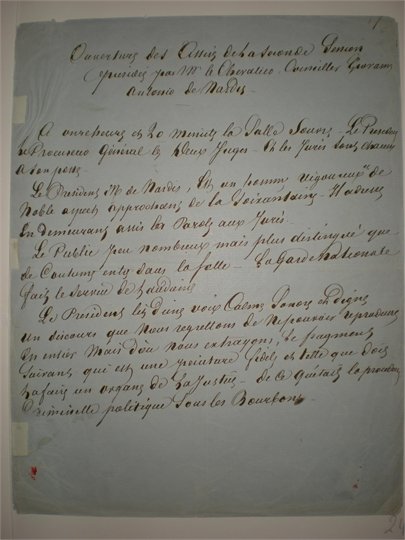 Ouverture des Assises de la seconde Session
présidées par Mr. le Chevalier Conseiller Giovanni
Antonio de Nardis.
A onze heures et 20 minutes la Salle - Le Président
le Procureur Général les deux Juges - Et les Jurés sont chacun
à son poste.
Le Président Mr. de Nardis, Est un homme vigoureux de
Noble aspect approchant de la soixantaine - Il adresse
En demeurant assis la Parole aux Jurés.
Le Public peu nombreux mais plus distingué que
de Coutume entre dans la Salle - La Garde Nationale
fait le service de
Le Président d'une voix Calme Sonore et Digne
un discours que Nous regrettons de Ne pouvoir reproduire
En entier Mais d'où nous extrayons le fragment
suivant, qui est une peinture fidèle et telle que doit
la faire un organe de la Justice - de ce qu'était la procédure
Criminelle politique sous les Bourbons.